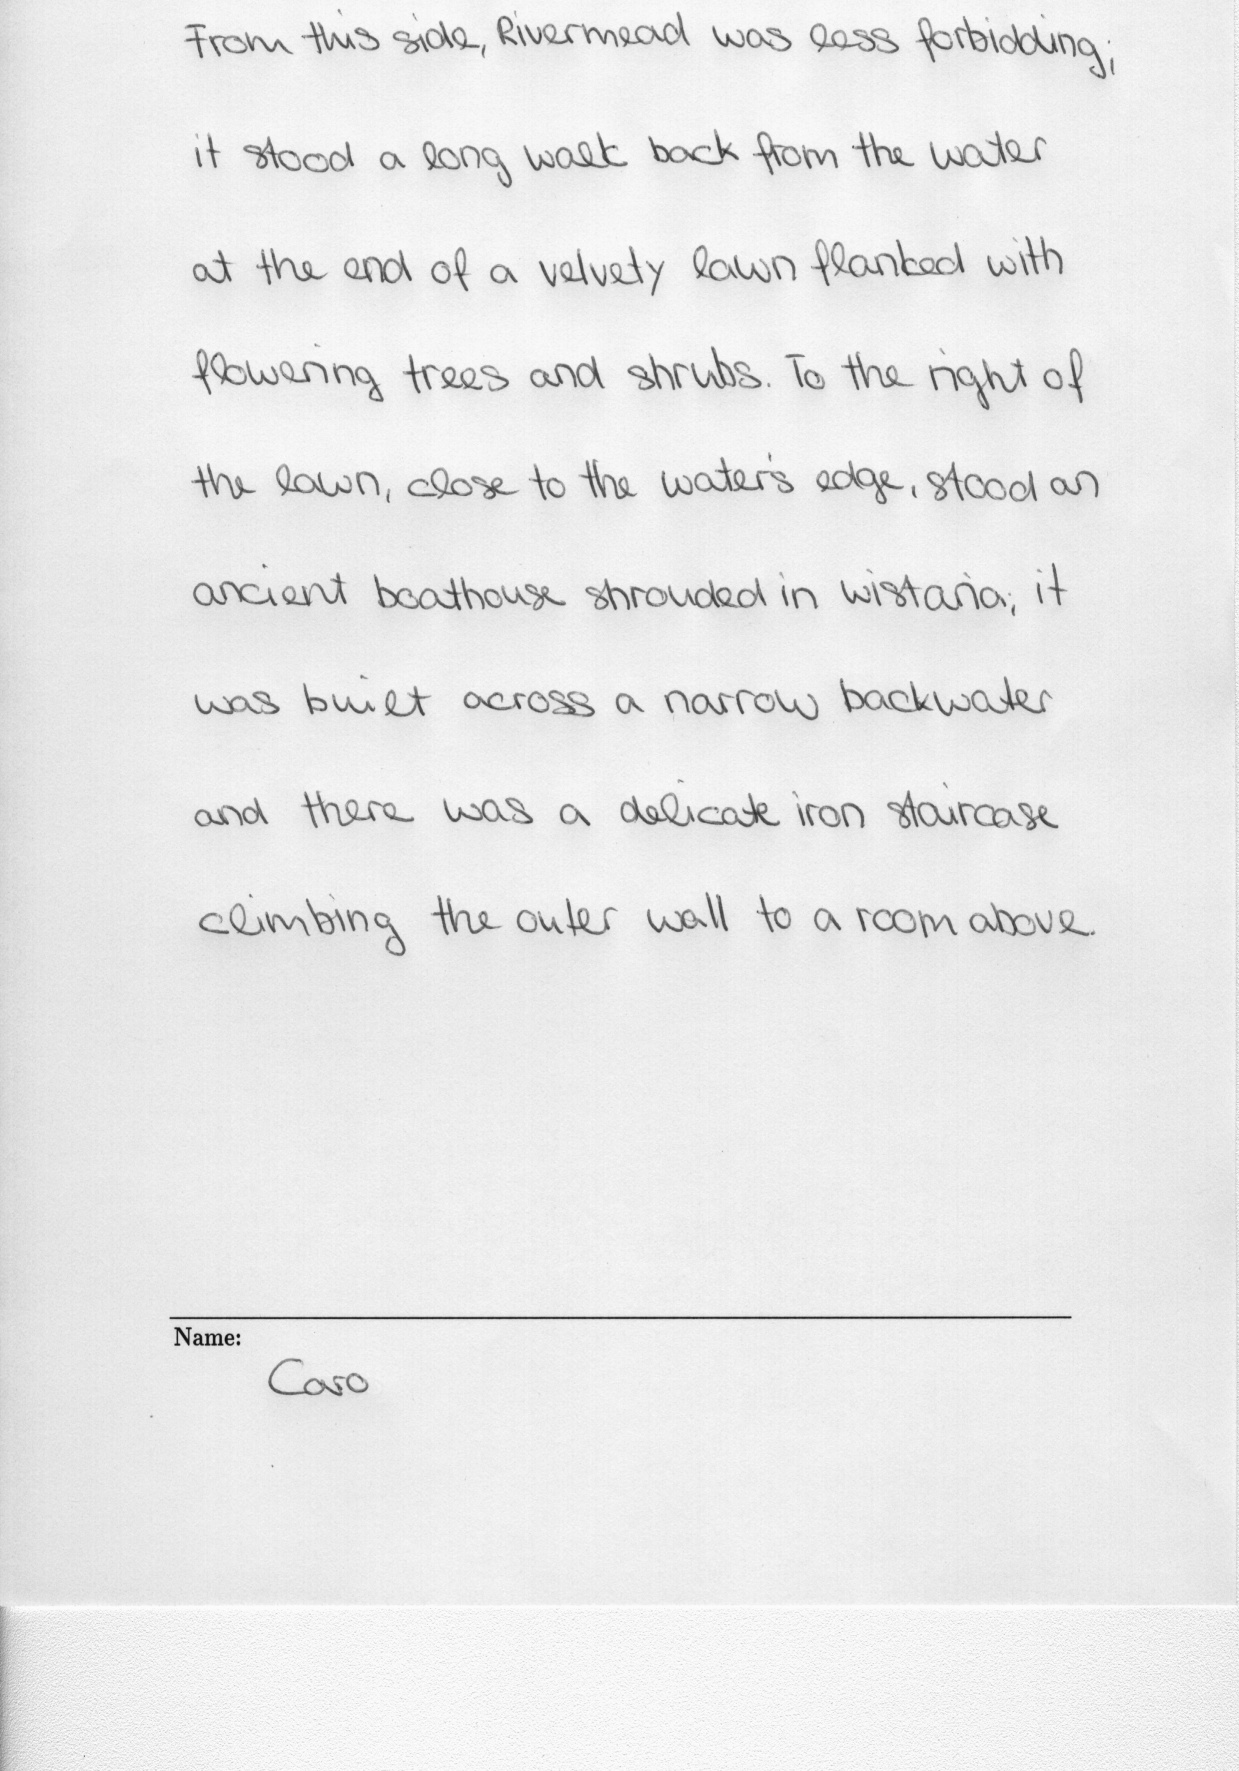 From this side, Rivermead was less forbidding;
it stood a long walk back from the water
at the end of a velvety lawn flanked with
flowering trees and shrubs. To the right of
the lawn, close to the water's edge, stood an
ancient boathouse shrouded in wistaria; it
was built across a narrow backwater
and there was a delicate iron staircase
climbing the outer wall to a room above.
Name:
Caro